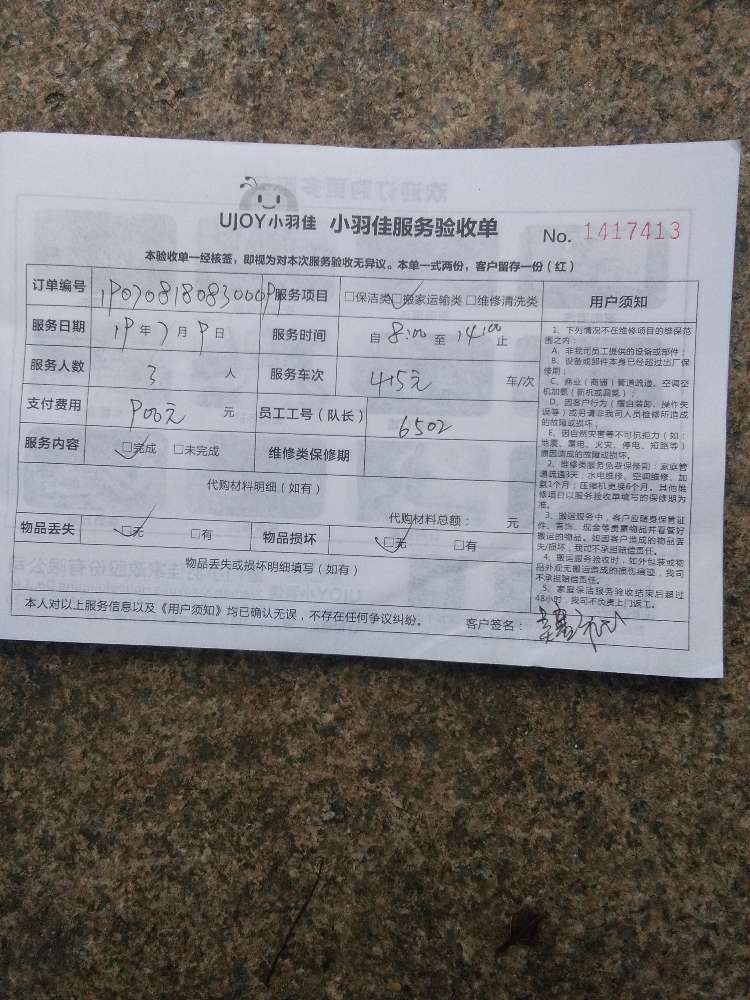 UJOY小羽佳 小羽佳服务验收单 No. 1417413
本验收单一经核签，即视为对本次服务验收无异议。本单一式两份，客户留存一份（红）
订单编号 服务项目 □保洁类 □搬家运输类 □维修清洗类 用户须知
服务日期 19年7月9日 服务时间 自8:00至14:00止
服务人数 3人 服务车次 4.15元 车/次
支付费用 900元 元 员工工号（队长） 6502
服务内容 □完成 □未完成 维修类保修期
代购材料明细（如有）
代购材料总额： 元
物品丢失 □无 □有 物品损坏 □无 □有
物品丢失或损坏明细填写（如有）
本人对以上服务信息以及《用户须知》均已确认无误，不存在任何争议纠纷。 客户签名：
1、下列情况不在维修项目的维保范
围之内：
A、非我司员工提供的设备或部件；
B、设备或部件本身已经超过出厂保
修期；
C、商业（商铺）管道疏通、空调空
机加氨（新机或漏氨）；
D、因客户行为（擅自装卸、操作失
误等）或另请非我司人员检修所造成
的故障或损坏；
E、因自然灾害等不可抗拒力（如：
地震、雷电、火灾、停电、短路等）
原因造成的故障或损坏。
2、维修类服务免费保修期：家庭管
道疏通3天；水电维修、空调维修、加
氨1个月；压缩机更换6个月。其他维
修项目以服务验收单填写的保修期为
准。
3、搬运服务中，客户应随身保管证
件、首饰、现金等贵重物品并看管好
搬运的物品。如因客户造成的物品丢
失/损坏，我司不承担赔偿责任。
4、搬运服务验收时，如外包装或物
品外观无搬运造成的损伤痕迹，我司
不承担赔偿责任。
5、家庭保洁服务验收结束后超过
48小时，我司不负责上门返工。